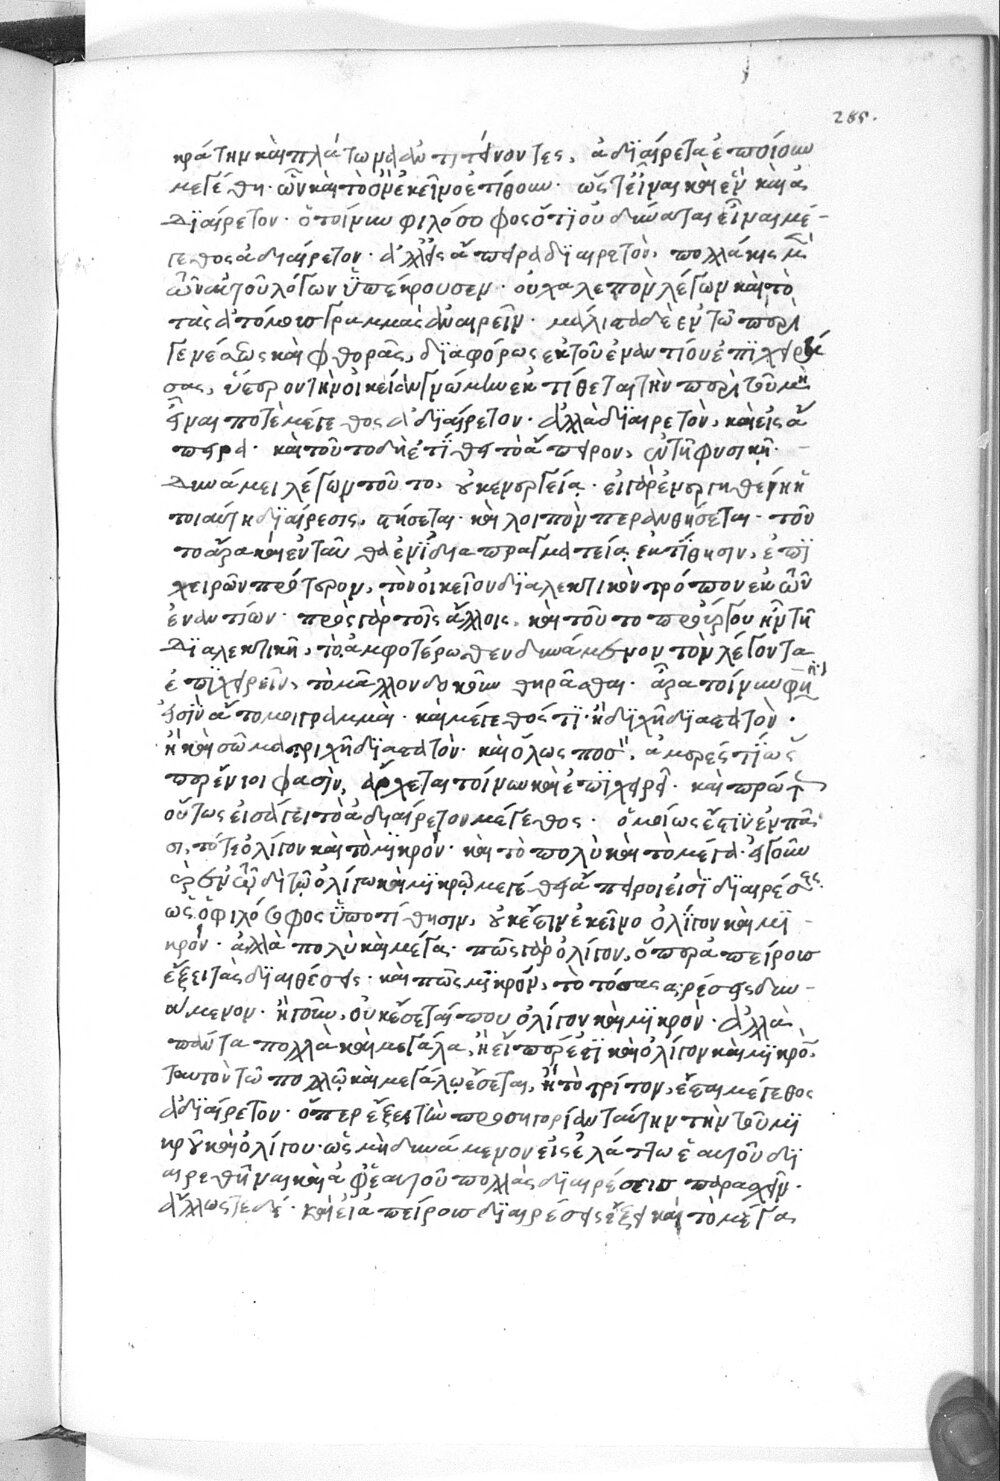 285.
κράτην καὶ πλάτωνα ἀντιτείνοντες, ἀδιαίρετα ἐποίουν
μεγέθη· ὧν καὶ τὸ ὂν ἐκεῖνο ἐτίθουν· ὥστε εἶναι καὶ ἓν καὶ ἀ
διαίρετον· ὁ τοίνυν φιλόσοφος ὅτι οὐ δύναται εἶναι μέ-
γεθος ἀδιαίρετον· ἀλλ' εἰς ἄπειρα διαιρετὸν, πολλάκις μὲν
ἐκ τοῦ λόγων ὑπέκρουσεν· οὐ χαλεπὸν λέγων καὶ τὸ
τὰς ἀτόμους γραμμὰς ἀναιρεῖν· μάλιστα δὲ ἐν τῷ περὶ
γενέσεως καὶ φθορᾶς, διαφόρως ἐκ τοῦ ἐναντίου ἐπιχειρή
σας, ὕστερον τὴν οἰκείαν γνώμην ἐκτίθεται τὴν περὶ τοῦ μὴ
εἶναι ποτὲ μέγεθος ἀδιαίρετον· ἀλλὰ διαιρετὸν, καὶ εἰς ἄ
πειρα· καὶ τοῦτο δὴ ἐτίθει τὸ ἄπειρον, ἐν τῇ φυσικῇ·
δυνάμει λέγων τοῦτο, οὐκ ἐνεργείᾳ· εἰ γὰρ ἐνεργηθείη ἡ
τοιαύτη διαίρεσις, στήσεται· καὶ λοιπὸν περανθήσεται· τοῦ
το ἄρα καὶ ἐνταῦθα ἐν ἰδίᾳ πραγματείᾳ ἐκτίθησιν, ἐπι
χειρῶν πρότερον, τὸν οἰκεῖον διαλεκτικὸν τρόπον ἐκ τῶν
ἐναντίων· πρὸς γὰρ τοῖς ἄλλοις, καὶ τοῦτο προὔργου ἦν τῇ
διαλεκτικῇ, τὸ ἀμφοτέρωθεν δυνάμενον τὸν λέγοντα
ἐπιχειρεῖν, τὸ μᾶλλον δοκοῦν θηρᾶσθαι· ἆρα τοίνυν φη
εἰσὶν ἄτομοι γραμμαὶ· καὶ μέγεθός τι· ἢ διχῆ διαστατὸν·
ἢ καὶ σῶμα τριχῆ διαστατὸν· καὶ ὅλως ποσὸν, ἀμερές τι ὡς
περ ἔνιοι φασὶν, ἄρχεται τοίνυν καὶ ἐπιχειρεῖ· καὶ πρῶτον
οὕτως εἰσάγει τὸ ἀδιαίρετον μέγεθος· ὁμοίως ἐστὶν ἐν πᾶ
σι, τό τε ὀλίγον καὶ τὸ μικρόν· καὶ τὸ πολὺ καὶ τὸ μέγα· εἰ γοῦν
ἐν τῷ ὀλίγῳ καὶ μικρῷ μεγέθει ἄπειροι εἰσὶ διαιρέσεις
ὡς ὁ φιλόσοφος ὑποτίθησιν, οὐκ ἔστιν ἐκεῖνο ὀλίγον καὶ μι-
κρόν· ἀλλὰ πολὺ καὶ μέγα· πῶς γὰρ ὀλίγον, ὅπερ ἀπείρους
ἕξει τὰς διαιρέσεις· καὶ πῶς μικρόν, τὸ τόσας αιρέσεις δυν-
άμενον· ἢ γοῦν, οὐκ ἔσεταί που ὀλίγον καὶ μικρὸν· ἀλλὰ
πάντα πολλὰ καὶ μεγάλα, ἢ εἴπερ ἐστὶ καὶ ὀλίγον καὶ μικρόν,
ταυτὸν τῷ πολλῷ καὶ μεγάλῳ ἔσεται, ἢ τὸ τρίτον, ἔσται μέγεθος
ἀδιαίρετον· ὅπερ ἕξει τὴν προσηγορίαν ταύτην τὴν τοῦ μι
κροῦ καὶ ὀλίγου· ὡς μὴ δυνάμενον εἰς ἐλάττω ἑαυτοῦ δι
αιρεθῆναι καὶ ἀφ' ἑαυτοῦ πολλὰς διαιρέσεις παρασχεῖν·
ἄλλως τε δέ· καὶ εἰ ἀπείρους διαιρέσεις ἕξει καὶ τὸ μέγα